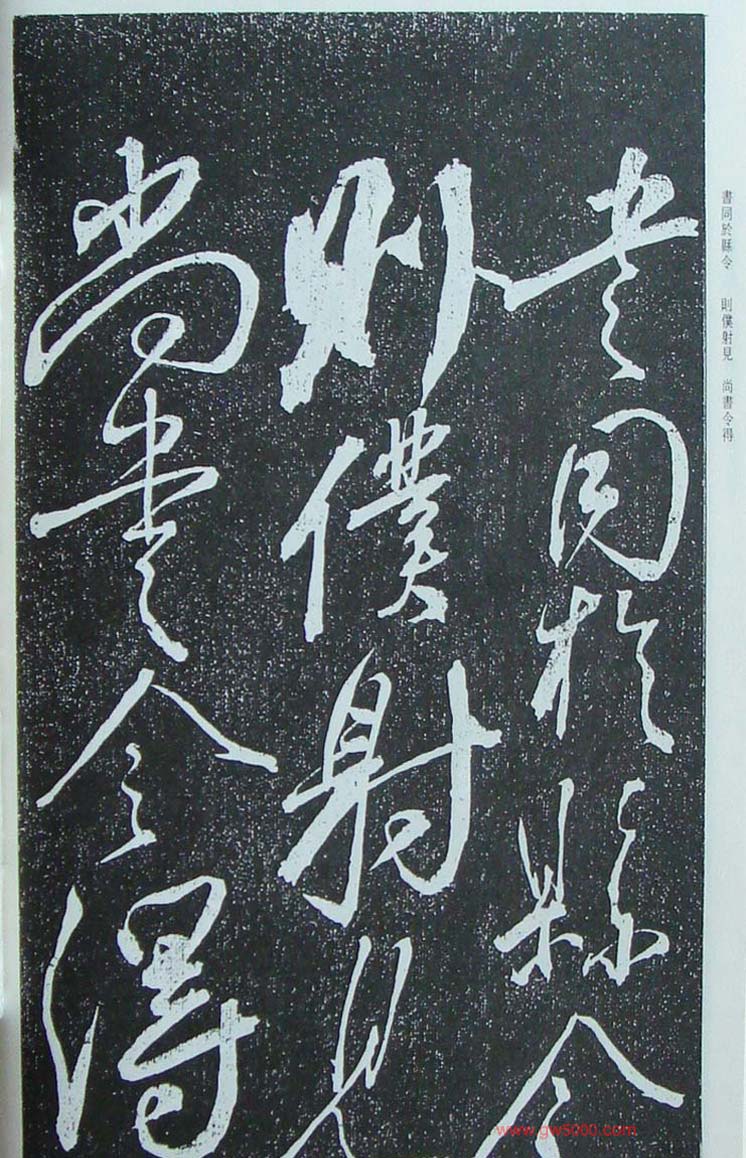 書同於縣令
則僕射見
尚書令得
書同於縣令 則僕射見 尚書令得
www.gw5000.com